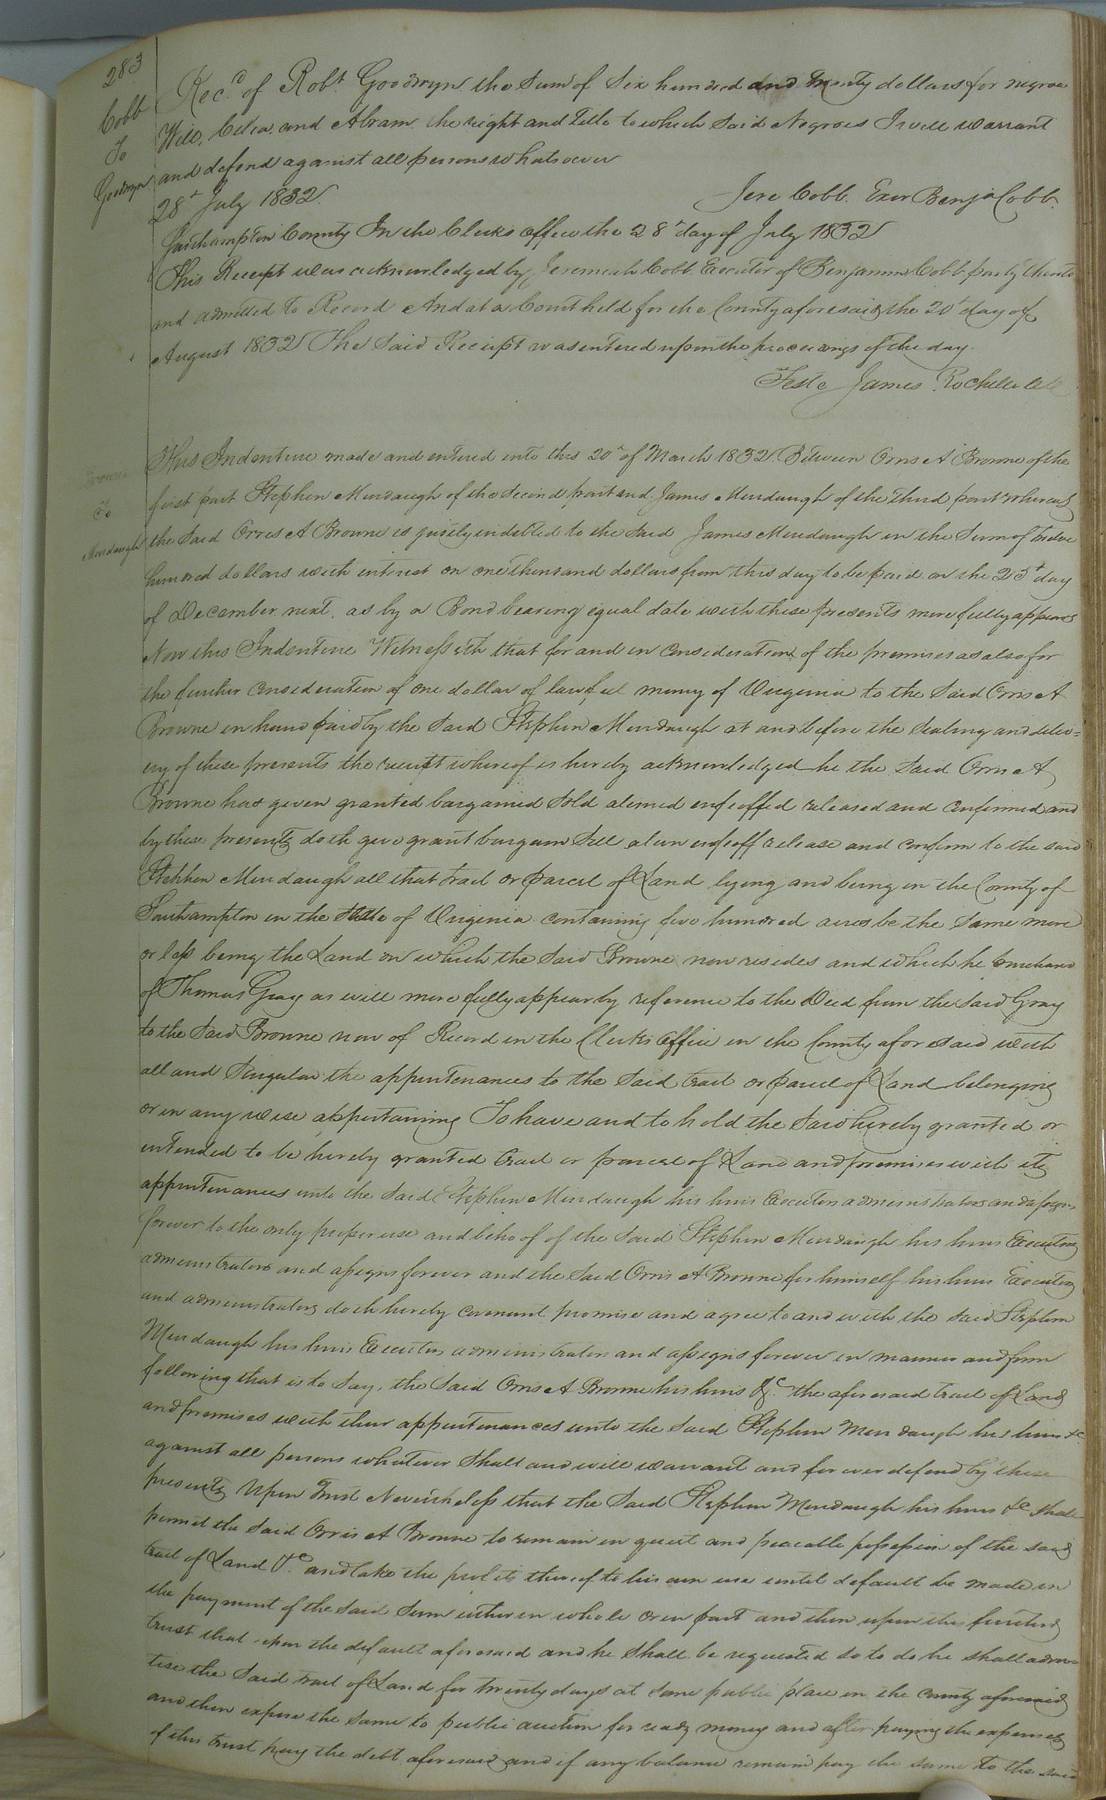 283
Cobb
To
Goodwyn
Rec.d of Robt. Goodwyn the Sum of Six hundred and twenty dollars for negroe
Will, Celia, and Abram the right and title to which Said Negroes I will warrant
and defend against all persons whatsoever
28t July 1832
Jere Cobb. Exor Benja Cobb.
Southampton County In the Clerks office the 28t day of July 1832
This Receipt was acknowledged by Jeremiah Cobb Executor of Benjamin Cobb party thereto
and admitted to Record And at a Court held for the County aforesaid the 20t day of
August 1832 The Said Receipt was entered upon the proceedings of the day.
Teste James Rochelle Clk
Browne
To
Murdaugh
This Indenture made and entered into this 20t of March 1832 Between Orris A Browne of the
first part Stephen Murdaugh of the Second part and James Murdaugh of the third part whereas
the Said Orris A Browne is justly indebted to the Said James Murdaugh in the Sum of Twelve
hundred dollars with interest on one thousand dollars from this day to be paid on the 25t day
of December next. as by a Bond bearing equal date with these presents more fully appears
Now this Indenture Witnesseth that for and in consideration of the premises as also for
the further consideration of one dollar of lawful money of Virginia to the Said Orris A
Browne in hand paid by the Said Stephen Murdaugh at and before the Sealing and deliv=
ery of these presents the receipt whereof is hereby acknowledged he the Said Orris A
Browne has given granted bargained Sold aliened enfeoffed released and confirmed and
by these presents doth give grant bargain Sell alien enfeoff release and confirm to the said
Stephen Murdaugh all that tract or parcel of Land lying and being in the County of
Southampton in the State of Virginia containing five hundred acres be the Same more
or less being the Land on which the Said Browne now resides and which he purchased
of Thomas Gray as will more fully appear by reference to the Deed from the Said Gray
to the Said Browne now of Record in the Clerks Office in the County aforesaid with
all and Singular the appurtenances to the Said tract or parcel of Land belonging
or in any wise appertaining To have and to hold the Said hereby granted or
intended to be hereby granted tract or parcel of Land and premises with its
appurtenances unto the Said Stephen Murdaugh his heirs Executors administrators and assigns
forever to the only proper use and behoof of the Said Stephen Murdaugh his heirs Executors
administrators and assigns forever and the Said Orris A Browne for himself his heirs Executors
and administrators doth hereby covenant promise and agree to and with the said Stephen
Murdaugh his heirs Executors administrators and assigns forever in manner and form
following that is to Say, the Said Orris A Browne his heirs &c the aforesaid tract of Land
and premises with their appurtenances unto the Said Stephen Murdaugh his heirs &c
against all persons whatever Shall and will warrant and forever defend by these
presents Upon Trust Nevertheless that the Said Stephen Murdaugh his heirs &c shall
permit the Said Orris A Browne to remain in quiet and peaceable possession of the said
tract of Land &c and take the profits thereof to his own use until default be made in
the payment of the Said Sum either in whole or in part and then upon this further
trust that upon the default aforesaid and he Shall be requested so to do he shall adver
tise the Said tract of Land for twenty days at Some public place in the county aforesaid
and then expose the Same to public auction for ready money and after paying the expenses
of this trust pay the debt aforesaid and if any balance remain pay the same to the said